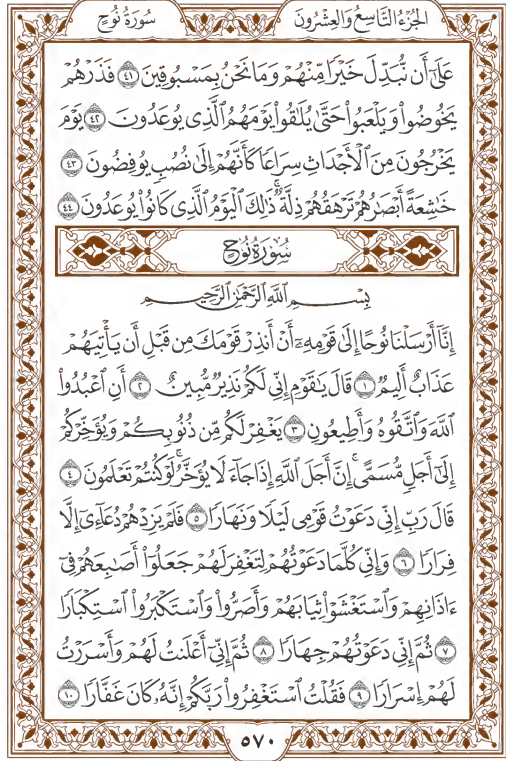 الجُزْءُ التَّاسِعُ وَالعِشْرُونَ
سُورَةُ نُوحٍ
عَلَىٰٓ أَن نُّبَدِّلَ خَيْرٗا مِّنْهُمْ وَمَا نَحْنُ بِمَسْبُوقِينَ ٤١ فَذَرْهُمْ
يَخُوضُواْ وَيَلْعَبُواْ حَتَّىٰ يُلَٰقُواْ يَوْمَهُمُ ٱلَّذِي يُوعَدُونَ ٤٢ يَوْمَ
يَخْرُجُونَ مِنَ ٱلْأَجْدَاثِ سِرَاعٗا كَأَنَّهُمْ إِلَىٰ نُصُبٖ يُوفِضُونَ ٤٣
خَٰشِعَةً أَبْصَٰرُهُمْ تَرْهَقُهُمْ ذِلَّةٞۚ ذَٰلِكَ ٱلْيَوْمُ ٱلَّذِي كَانُواْ يُوعَدُونَ ٤٤
سُورَةُ نُوحٍ
بِسْمِ ٱللَّهِ ٱلرَّحْمَٰنِ ٱلرَّحِيمِ
إِنَّآ أَرْسَلْنَا نُوحًا إِلَىٰ قَوْمِهِۦٓ أَنْ أَنذِرْ قَوْمَكَ مِن قَبْلِ أَن يَأْتِيَهُمْ
عَذَابٌ أَلِيمٞ ١ قَالَ يَٰقَوْمِ إِنِّي لَكُمْ نَذِيرٞ مُّبِينٌ ٢ أَنِ ٱعْبُدُواْ
ٱللَّهَ وَٱتَّقُوهُ وَأَطِيعُونِ ٣ يَغْفِرْ لَكُم مِّن ذُنُوبِكُمْ وَيُؤَخِّرْكُمْ
إِلَىٰٓ أَجَلٖ مُّسَمًّىۚ إِنَّ أَجَلَ ٱللَّهِ إِذَا جَآءَ لَا يُؤَخَّرُۚ لَوْ كُنتُمْ تَعْلَمُونَ ٤
قَالَ رَبِّ إِنِّي دَعَوْتُ قَوْمِي لَيْلٗا وَنَهَارٗا ٥ فَلَمْ يَزِدْهُمْ دُعَآءِيٓ إِلَّا
فِرَارٗا ٦ وَإِنِّي كُلَّمَا دَعَوْتُهُمْ لِتَغْفِرَ لَهُمْ جَعَلُوٓاْ أَصَٰبِعَهُمْ فِيٓ
ءَاذَانِهِمْ وَٱسْتَغْشَوْاْ ثِيَابَهُمْ وَأَصَرُّواْ وَٱسْتَكْبَرُواْ ٱسْتِكْبَارٗا
٧ ثُمَّ إِنِّي دَعَوْتُهُمْ جِهَارٗا ٨ ثُمَّ إِنِّيٓ أَعْلَنتُ لَهُمْ وَأَسْرَرْتُ
لَهُمْ إِسْرَارٗا ٩ فَقُلْتُ ٱسْتَغْفِرُواْ رَبَّكُمْ إِنَّهُۥ كَانَ غَفَّارٗا ١٠
٥٧٠